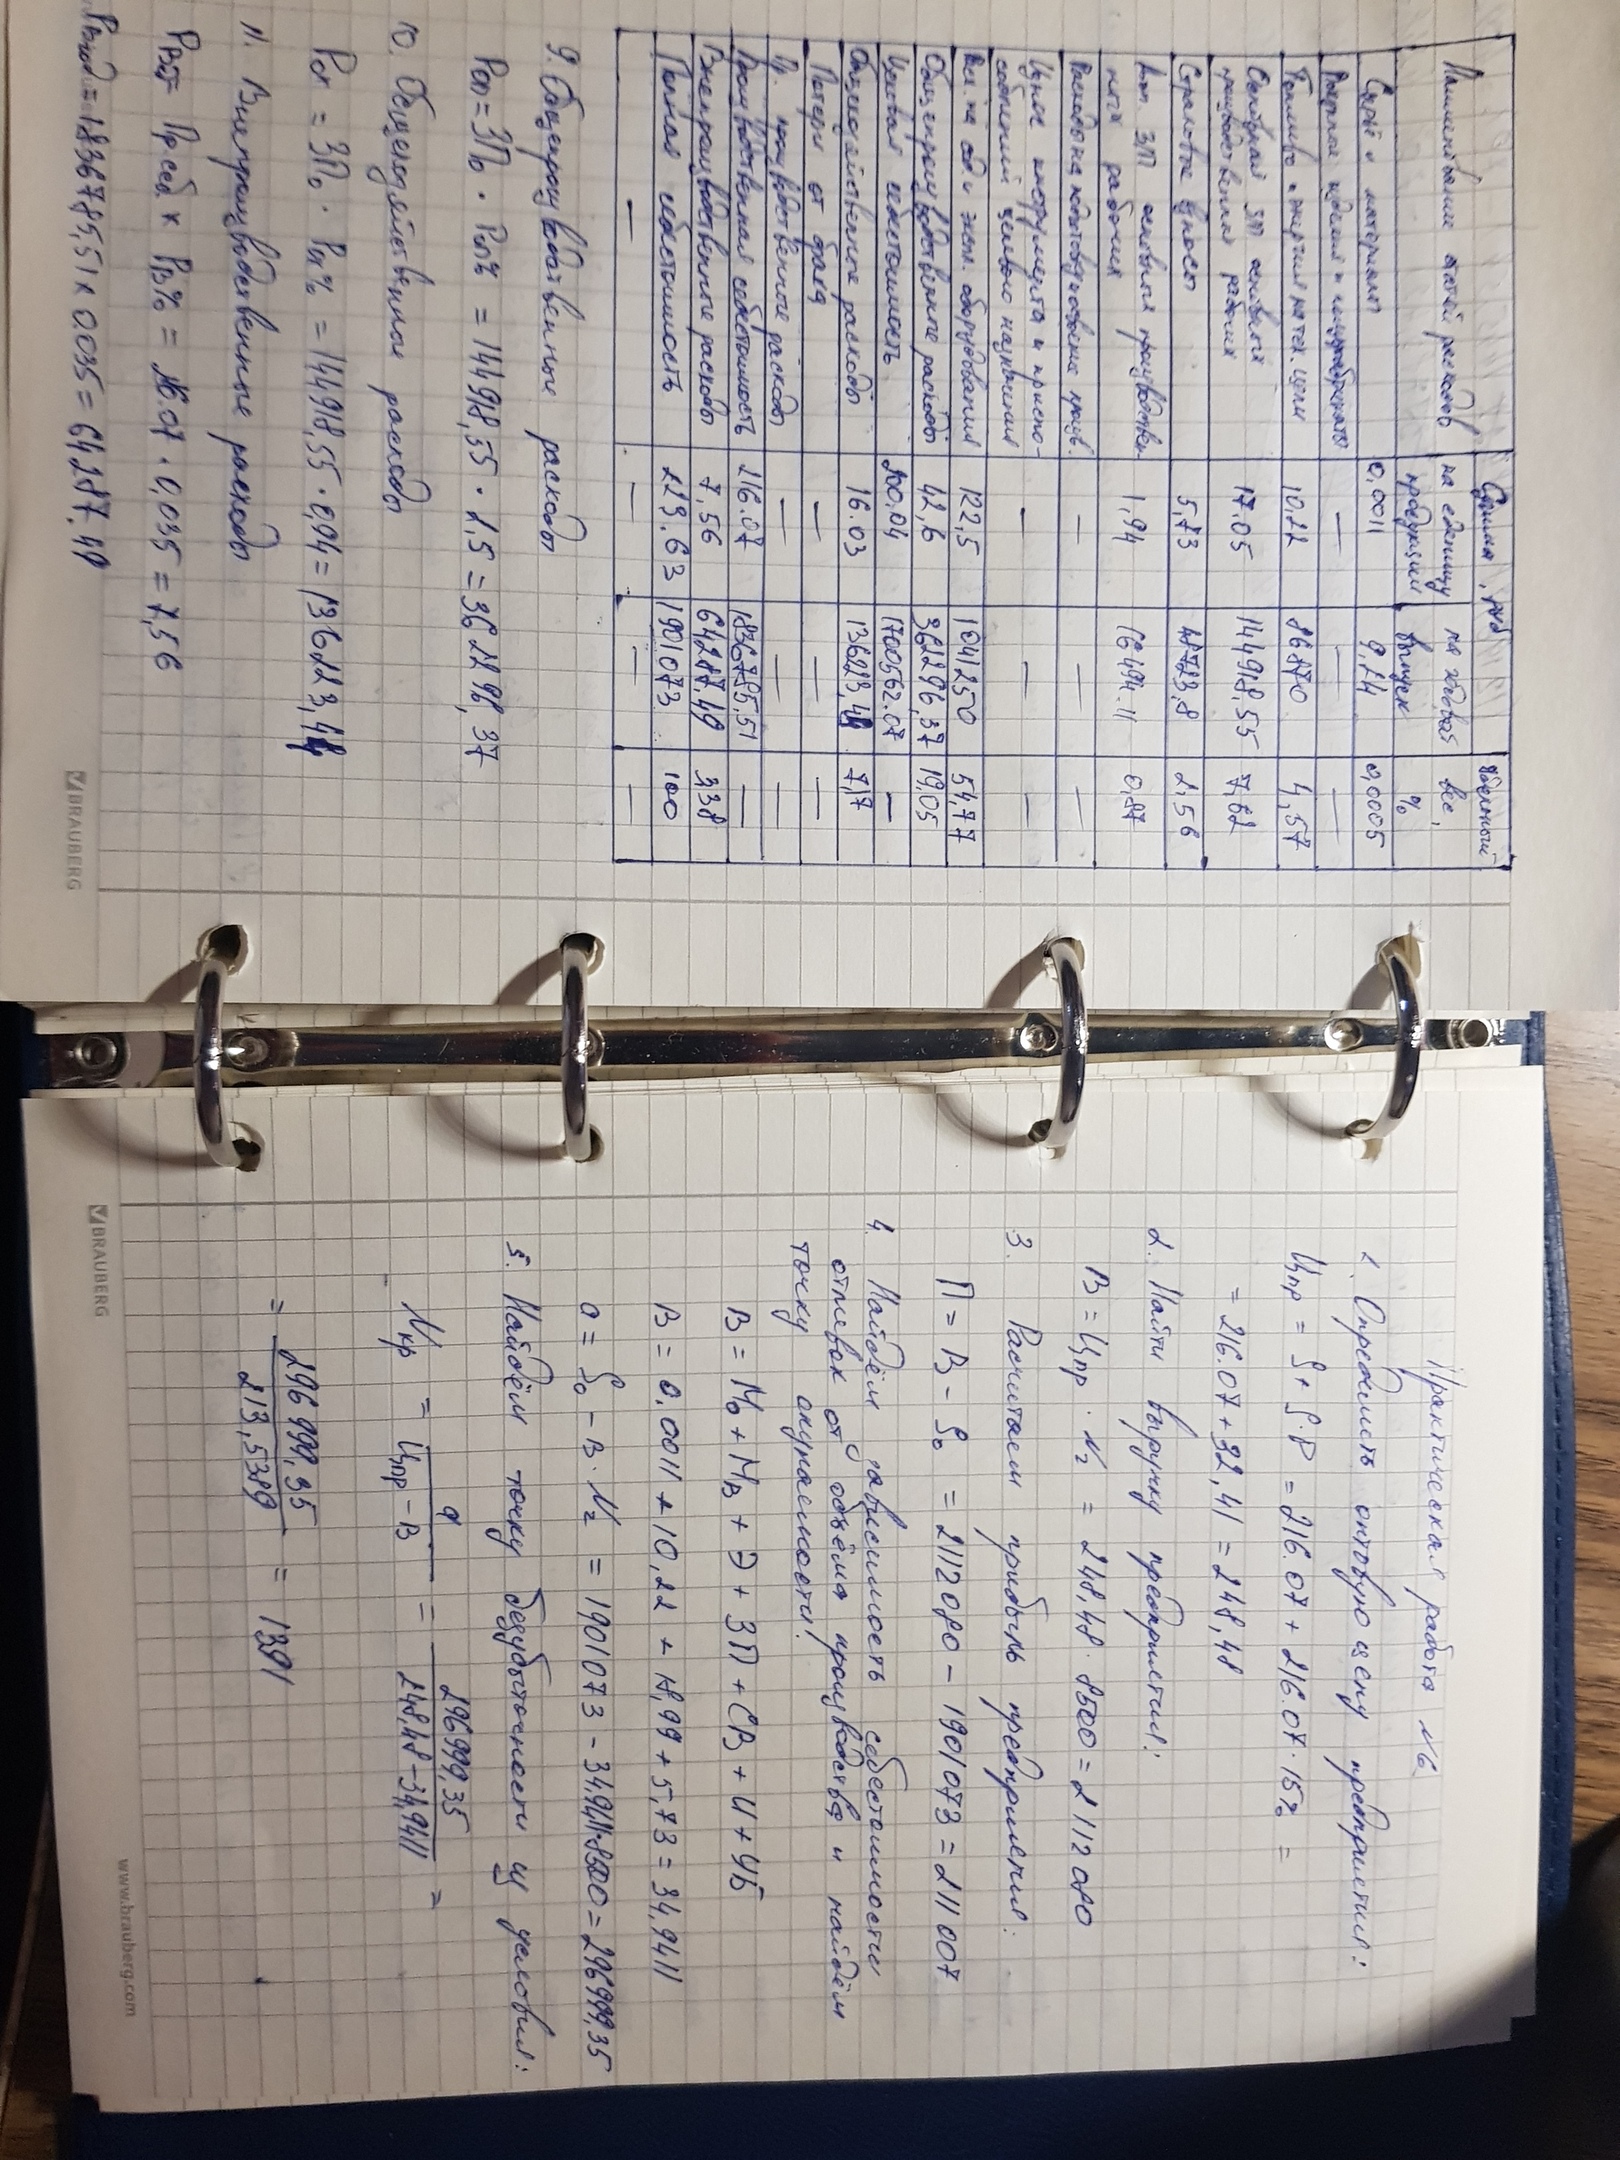 Наименование статей расходов
Сумма, руб
Удельный вес, %
на еденицу продукции
на годовой выпуск
Сырьё и материалы 0,0011 9,24 0,0005
Покупные изделия и полуфабрикаты — — —
Топливо и энергия на тех. цели 10,22 86870 4,57
Основная ЗП основных
производственных рабочих 17.05 144918,55 7,62
Страховые взносы 5,73 48723,8 2,56
Доп. ЗП основных производствен-
ных рабочих 1,94 16494.11 0,87
Расходы на подготовку и освоение произв. — — —
Износ инструмента и приспо-
соблений целевого назначения — — —
Рсх. на сод. и экспл. оборудования 122,5 1041250 54,77
Общепроизводственные расходы 42,6 362296,37 19,05
Цеховая себестоимость 200.04 1700562.07 —
Общехозяйственные расходы 16.03 136223,44 7,17
Потери от брака — — —
Пр. производственные расходы — — —
Производственная себестоимость 216.07 1836785,51 —
Внепроизводственные расходы 7,56 64287.49 3,38
Полная себестоимость 223.63 1901073 100
— — — —
9. Общепроизводственные расходы
Роп = ЗПо · Роп% = 144918,55 · 2,5 = 362296,37
10. Общехозяйственные расходы
Рох = ЗПо · Рох% = 144918,55 · 0,94 = 136223,44
11. Внепроизводственные расходы
Пр.себ. х Рв% = 216.07 · 0,035 = 7,56
Рвгод = 1836785,51 х 0.035 = 64287.49
BRAUBERG
Практическая работа №6
1. Определить оптовую цену предприятия:
Цпр = S + S·Р = 216.07 + 216.07 · 15% =
= 216.07 + 32,41 = 248,48
2. Найти выручку предприятия:
В = Цпр · Nг = 248,48 · 8500 = 2112080
3. Расчитаем прибыль предприятия:
П = В − So = 2112080 − 1901073 = 211007
4. Найдём зависимость себестоимости
отливок от объёма производства и найдём
точку окупаемости:
В = Мо + Мв + Э + ЗП + СВ + И + УБ
В = 0.0011 + 10,22 + 18,99 + 5,73 = 34,9411
а = So − в · Nг = 1901073 − 34,9411·8500 = 296999,35
5. Найдём точку безубыточности из условия:
Nкр = а / Цпр − В = 296999,35 / 248,48 − 34,9411 =
= 296999,35 / 213,5389 = 1391
BRAUBERG
www.brauberg.com